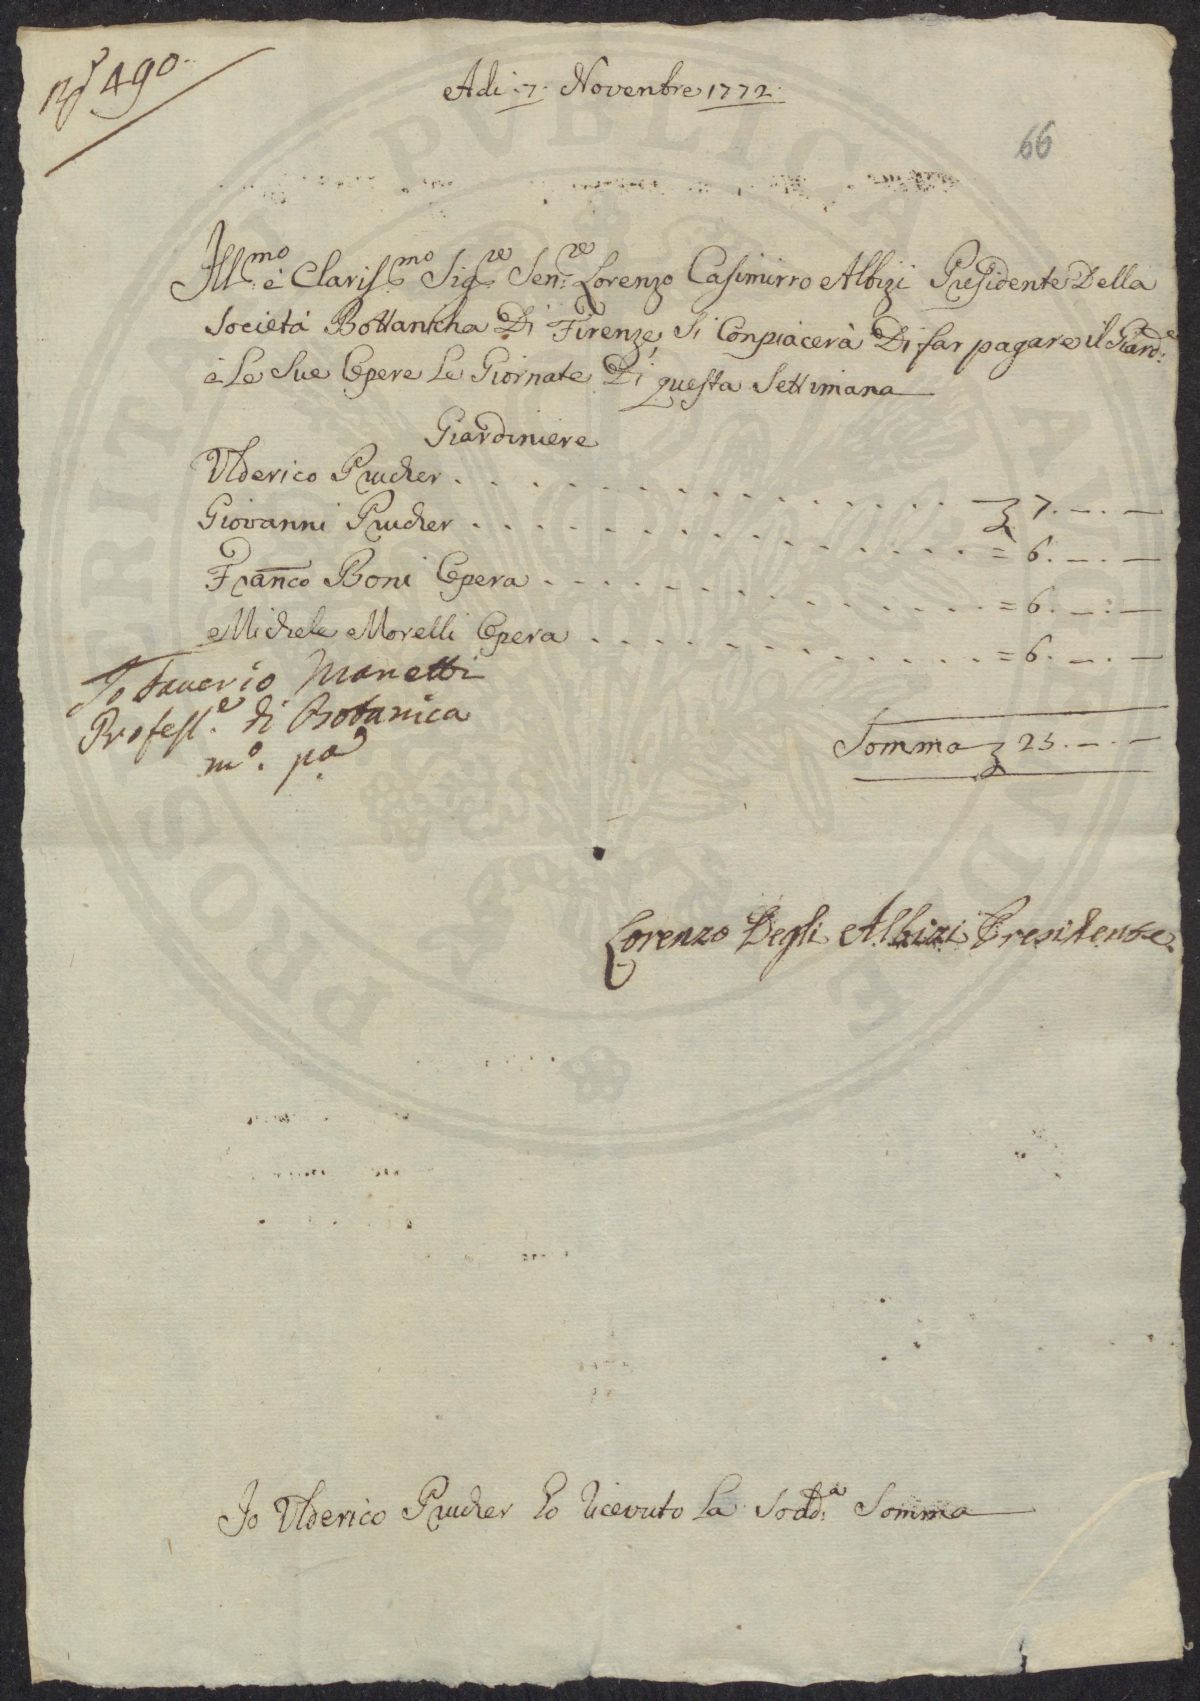 N.º 490.
Adi: 7. Novenbre 1772.
66
Ill.mo è Claris.mo Sig.re Sen.re Lorenzo Casimirro Albizi Presidente Della
Società Bottanicha Di Firenze, Si Conpiacerà Di far pagare il Giard.e
è Le Sue Opere Le Giornate Di questa Settimana
Giardiniere
Ulderico Prucher . . . . . . . . . . . . . . . . £ 7. —. —
Giovanni Prucher . . . . . . . . . . . . . . . . = 6. —. —
Franco Boni Opera . . . . . . . . . . . . . . . = 6. —. —
Michele Morelli Opera . . . . . . . . . . . . . = 6. —. —
Io Saverio Manetti
Profess.e di Botanica
m.o p.a
Somma £ 25. —. —
Lorenzo Degli Albizi Presidente
Io Ulderico Prucher ho ricevuto la Sodd.a Somma